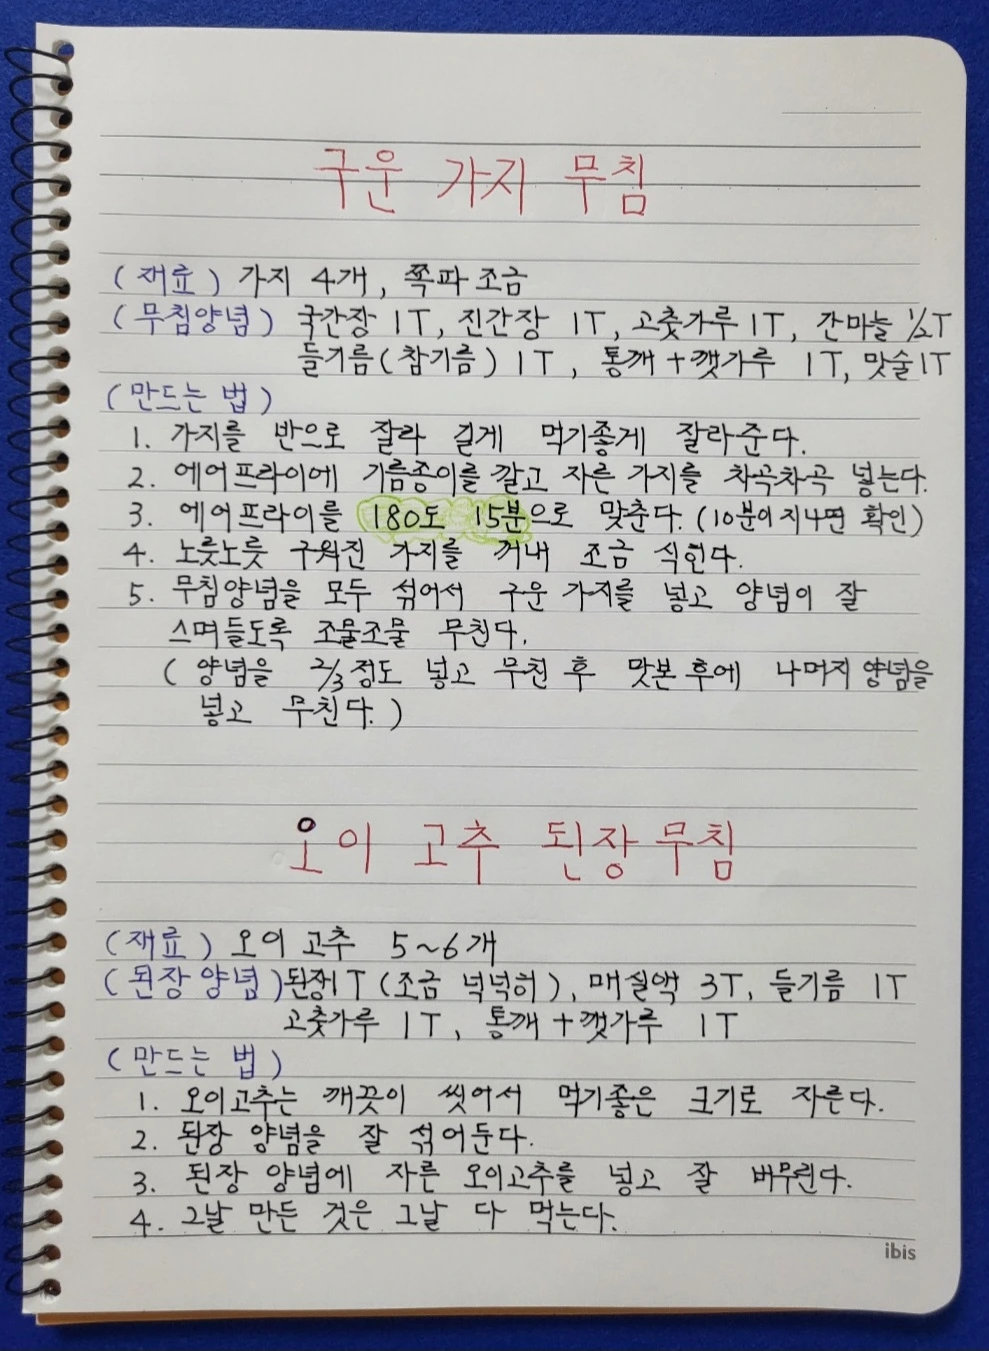 구운 가지 무침
(재료) 가지 4개, 쪽파 조금
(무침양념) 국간장 1T, 진간장 1T, 고춧가루 1T, 간마늘 ½T
들기름(참기름) 1T, 통깨+깻가루 1T, 맛술1T
(만드는 법)
1. 가지를 반으로 잘라 길게 먹기좋게 잘라준다.
2. 에어프라이에 기름종이를 깔고 자른 가지를 차곡차곡 넣는다.
3. 에어프라이를 180도 15분으로 맞춘다. (10분이 지나면 확인)
4. 노릇노릇 구워진 가지를 꺼내 조금 식힌다.
5. 무침양념을 모두 섞어서 구운 가지를 넣고 양념이 잘
스며들도록 조물조물 무친다.
(양념을 2/3정도 넣고 무친 후 맛본 후에 나머지 양념을
넣고 무친다.)
오이 고추 된장 무침
(재료) 오이 고추 5~6개
(된장 양념) 된장1T (조금 넉넉히), 매실액 3T, 들기름 1T
고춧가루 1T, 통깨+깻가루 1T
(만드는 법)
1. 오이고추는 깨끗이 씻어서 먹기좋은 크기로 자른다.
2. 된장 양념을 잘 섞어둔다.
3. 된장 양념에 자른 오이고추를 넣고 잘 버무린다.
4. 그날 만든 것은 그날 다 먹는다.
ibis